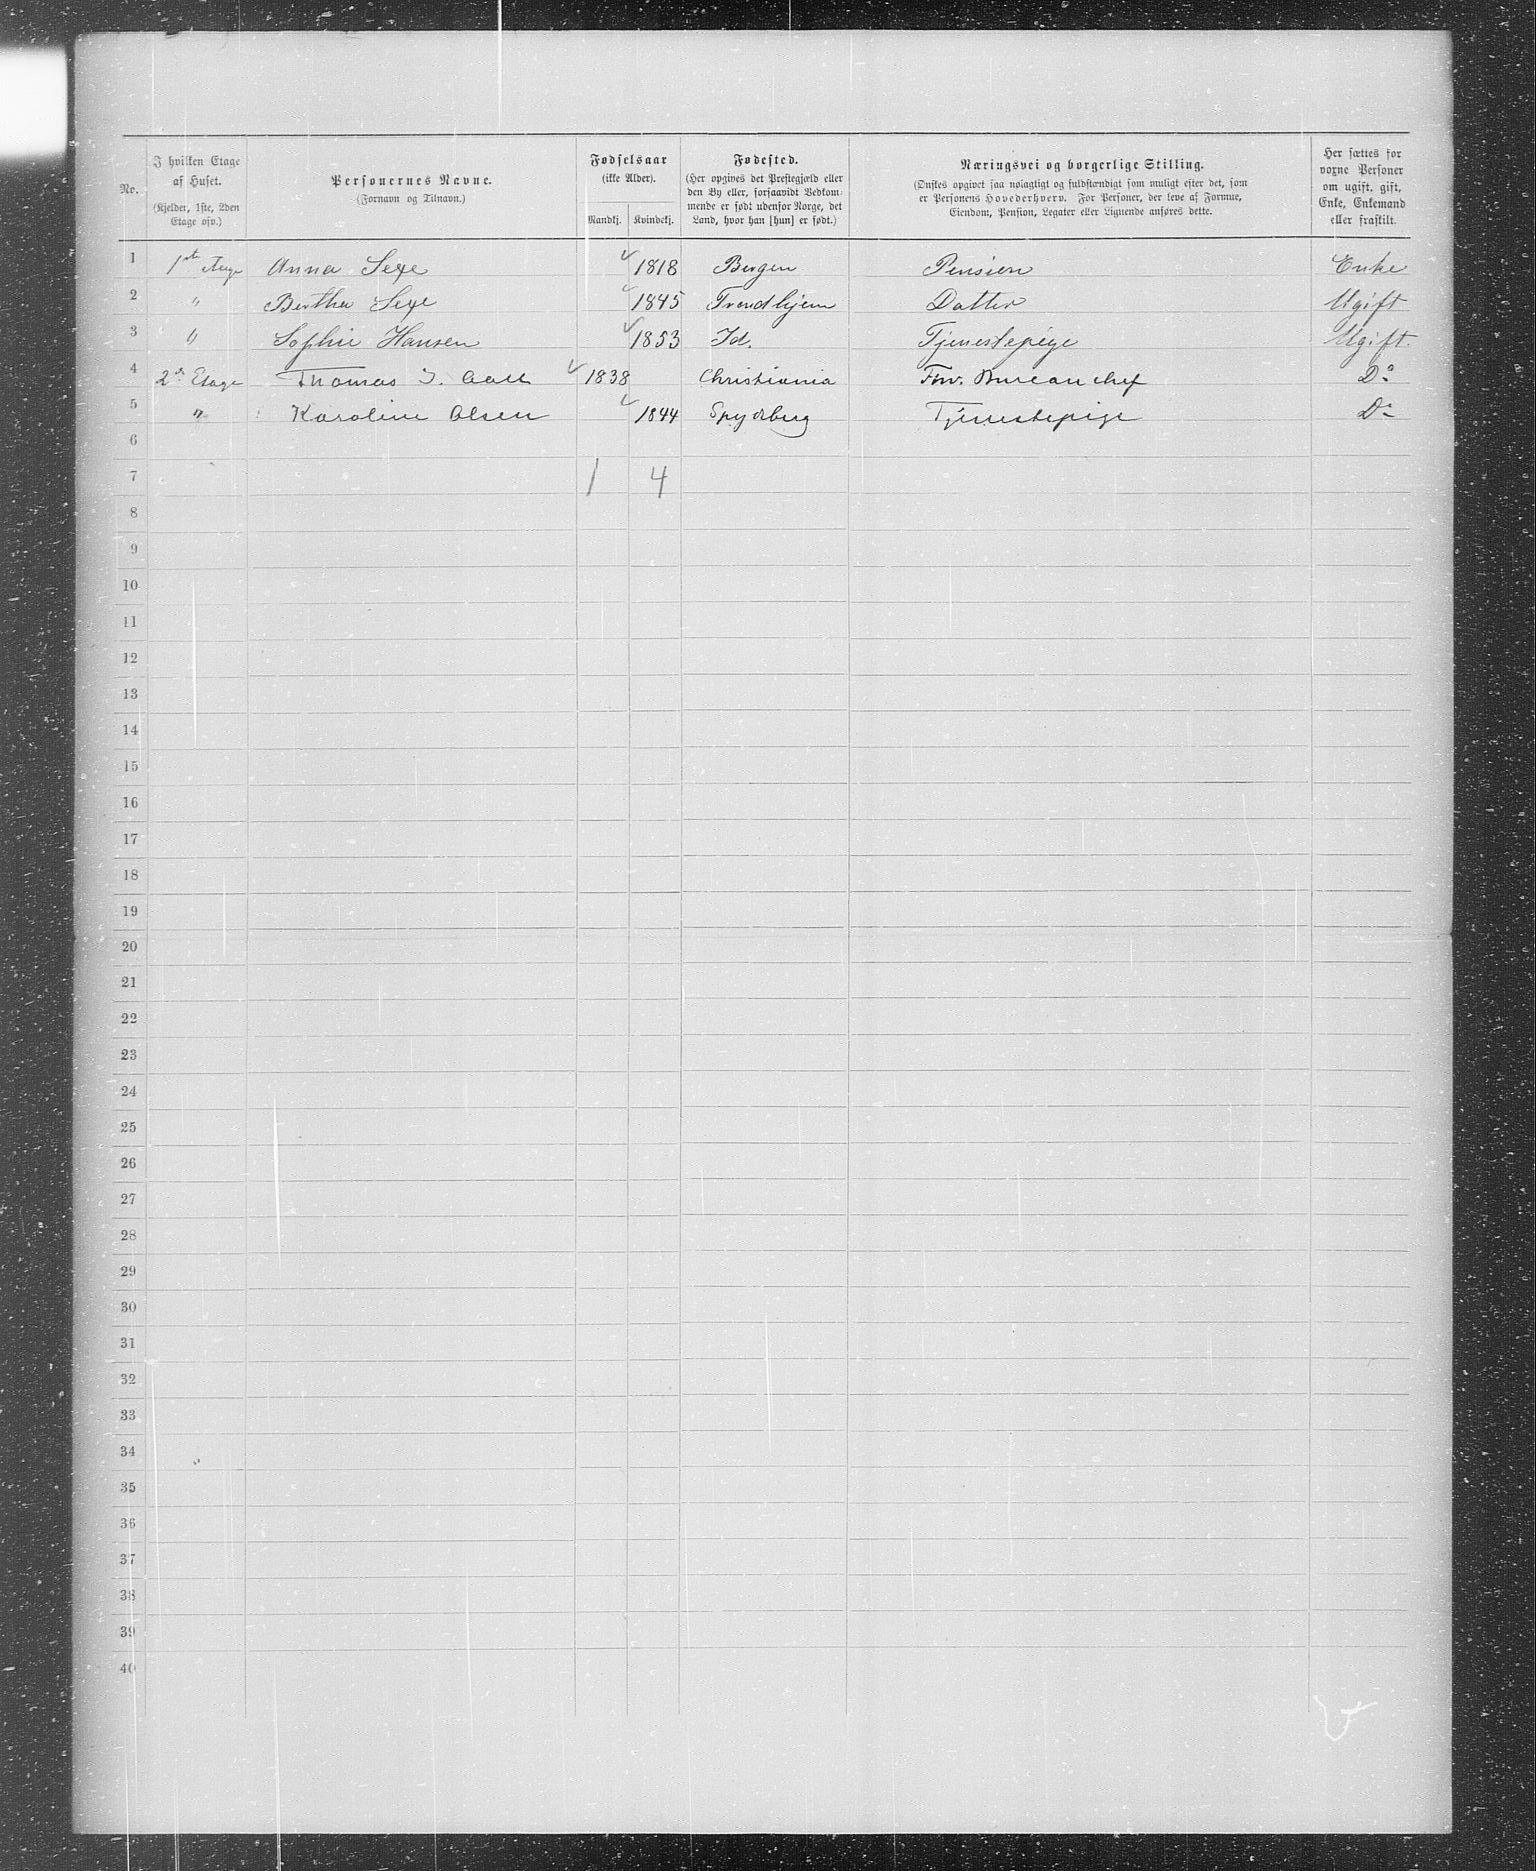 No. | I hvilken Etage af Huset. (Kjelder, 1ste, 2den Etage osv.) | Personernes Navne. (Fornavn og Tilnavn.) | Fødselsaar (ikke Alder). Mandkj. | Kvindekj. | Fødested. (Her opgives det Præstegjæld eller den By eller, forsaavidt Vedkommende er født udenfor Norge, det Land, hvor han [hun] er født.) | Næringsvei og borgerlige Stilling. (Ønskes opgivet saa nøiagtigt og fuldstændigt som muligt efter det, som er Personens Hovederhverv. For Personer, der leve af Formue, Eiendom, Pension, Legater eller Lignende anføres dette. | Her sættes for voxne Personer om ugift, gift, Enke, Enkemand eller fraskilt.
1 | 1st Etage | Anna Sexe | | 1818 | Bergen | Pension | Enke
2 | " | Berthe Sexe | | 1845 | Trondhjem | Datter | Ugift
3 | " | Sophie Hansen | | 1853 | Id. | Tjenestepige | Ugift.
4 | 2den Etage | Thomas J. Aall | 1838 | | Christiania | Fhv. Bureauchef | Do
5 | " | Karoline Olsen | | 1844 | Spydberg | Tjenestepige | Do
6
7 | | | 1 | 4
8
9
10
11
12
13
14
15
16
17
18
19
20
21
22
23
24
25
26
27
28
29
30
31
32
33
34
35
36
37
38
39
40